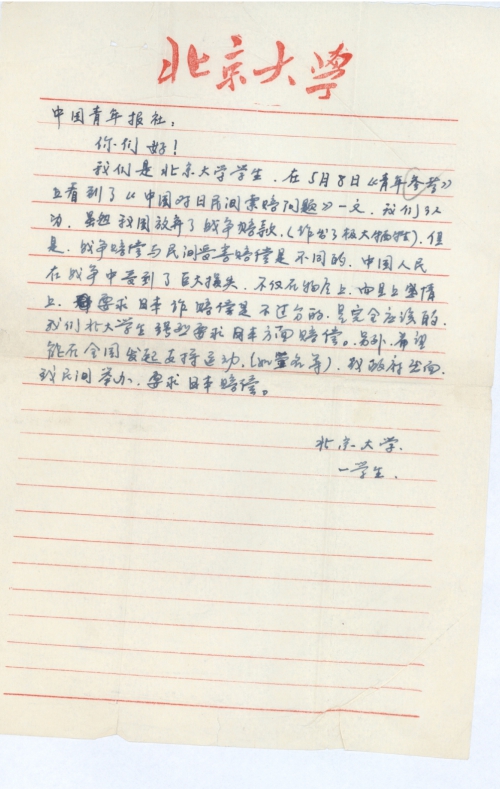 北京大学
中国青年报社:
你们好!
我们是北京大学学生,在5月8日《青年参考》
上看到了《中国对日民间索赔问题》一文,我们认
为,虽然我国放弃了战争赔款,(作出了极大牺牲),但
是,战争赔偿与民间受害赔偿是不同的,中国人民
在战争中受到了巨大损失,不仅在物质上,而且在感情
上,要求日本作赔偿是不过分的,是完全应该的,
我们北大学生强烈要求日本方面赔偿。另外,希望
能在全国发起支持运动,(如签名等),我政府出面,
或民间举办,要求日本赔偿。
北京大学.
一学生.